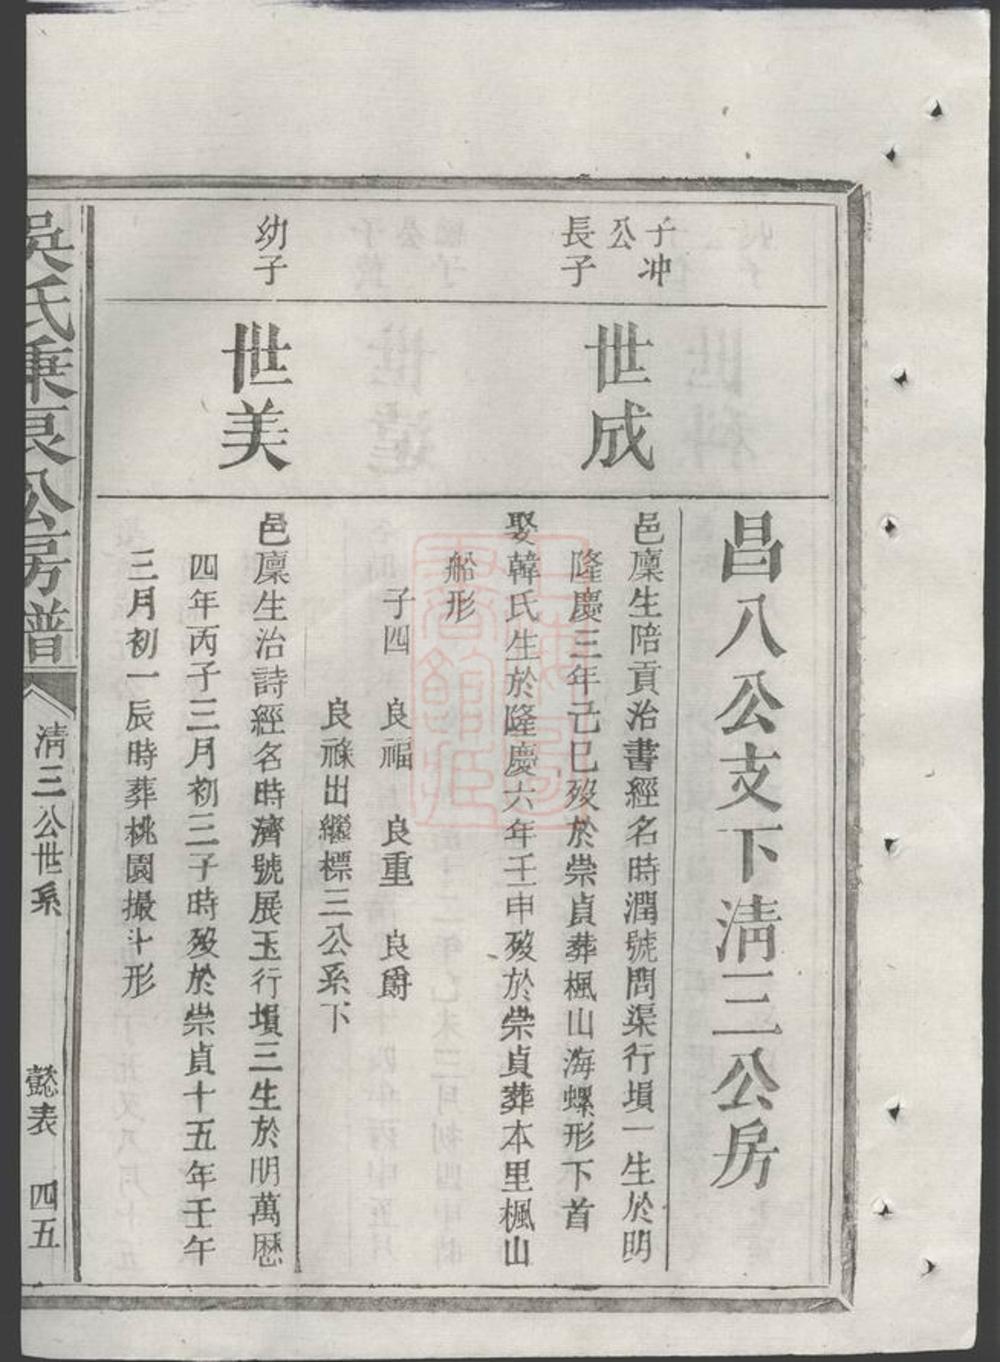 昌八公支下清三公房
千冲
公
長子
世成
邑廩生陪貢治書經名時潤號問渠行塤一生於明
隆慶三年己巳歿於崇貞葬楓山海螺形下首
娶韓氏生於隆慶六年壬申歿於崇貞葬本里楓山
船形
子四 良福 良重 良爵
良祿出繼標三公系下
幼子
世美
邑廩生治詩經名時濟號展玉行塤三生於明萬歷
四年丙子三月初三子時歿於崇貞十五年壬午
三月初一辰時葬桃園撮斗形
吳氏乗良公房譜
清三公世系
懿表 四五